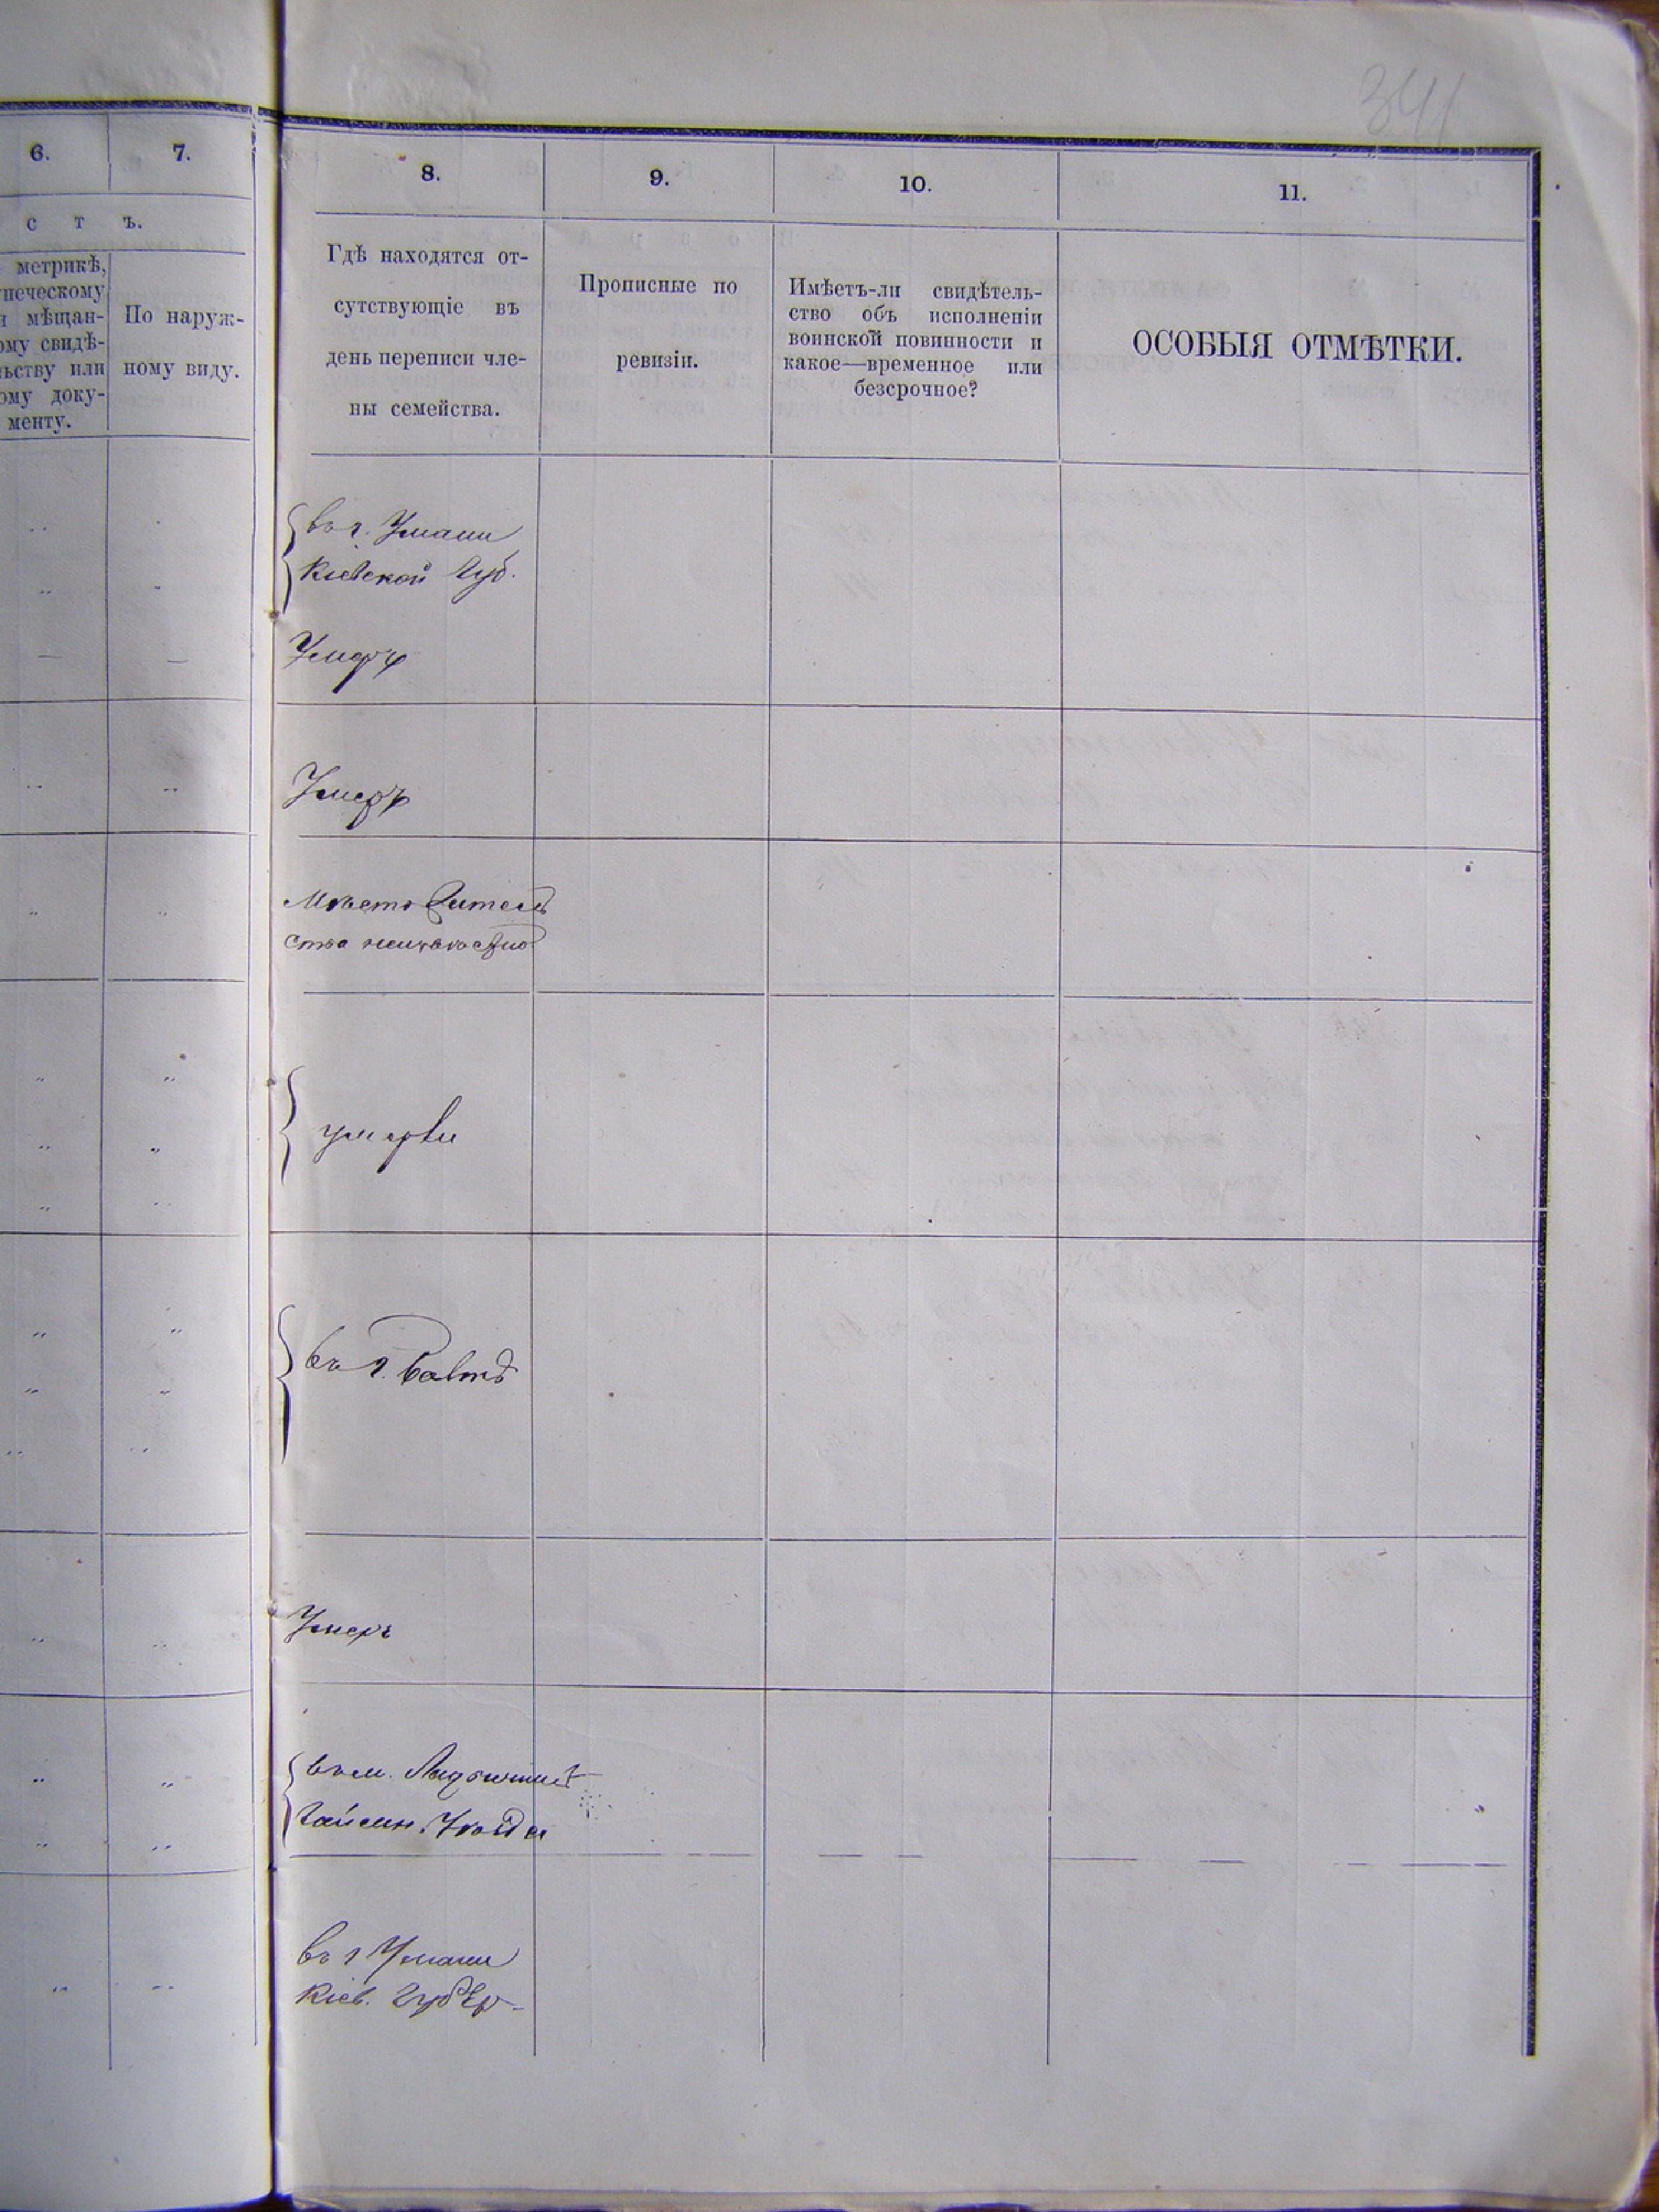 341
6.
7.
с т ъ.
метрикѣ,
мѣщан-
свидѣ-
или
доку-
менту.
По наруж-
ному виду.
8.
9.
10.
11.
Гдѣ находятся от-
сутствующіе въ
день переписи чле-
ны семейства.
Прописные по
ревизіи.
Имѣетъ-ли свидѣтель-
ство объ исполненіи
воинской повинности и
какое—временное или
безсрочное?
ОСОБЫЯ ОТМѢТКИ.
въ г. Умани
Кіевской Губ.
Умеръ
Умеръ
Мѣсто жительс
ства неизвѣстно
умерли
въ г. Балтѣ
Умеръ
въ м. Ладыжинѣ
Гайсин. Уѣзда
въ г Умани
Кіев. Губер.